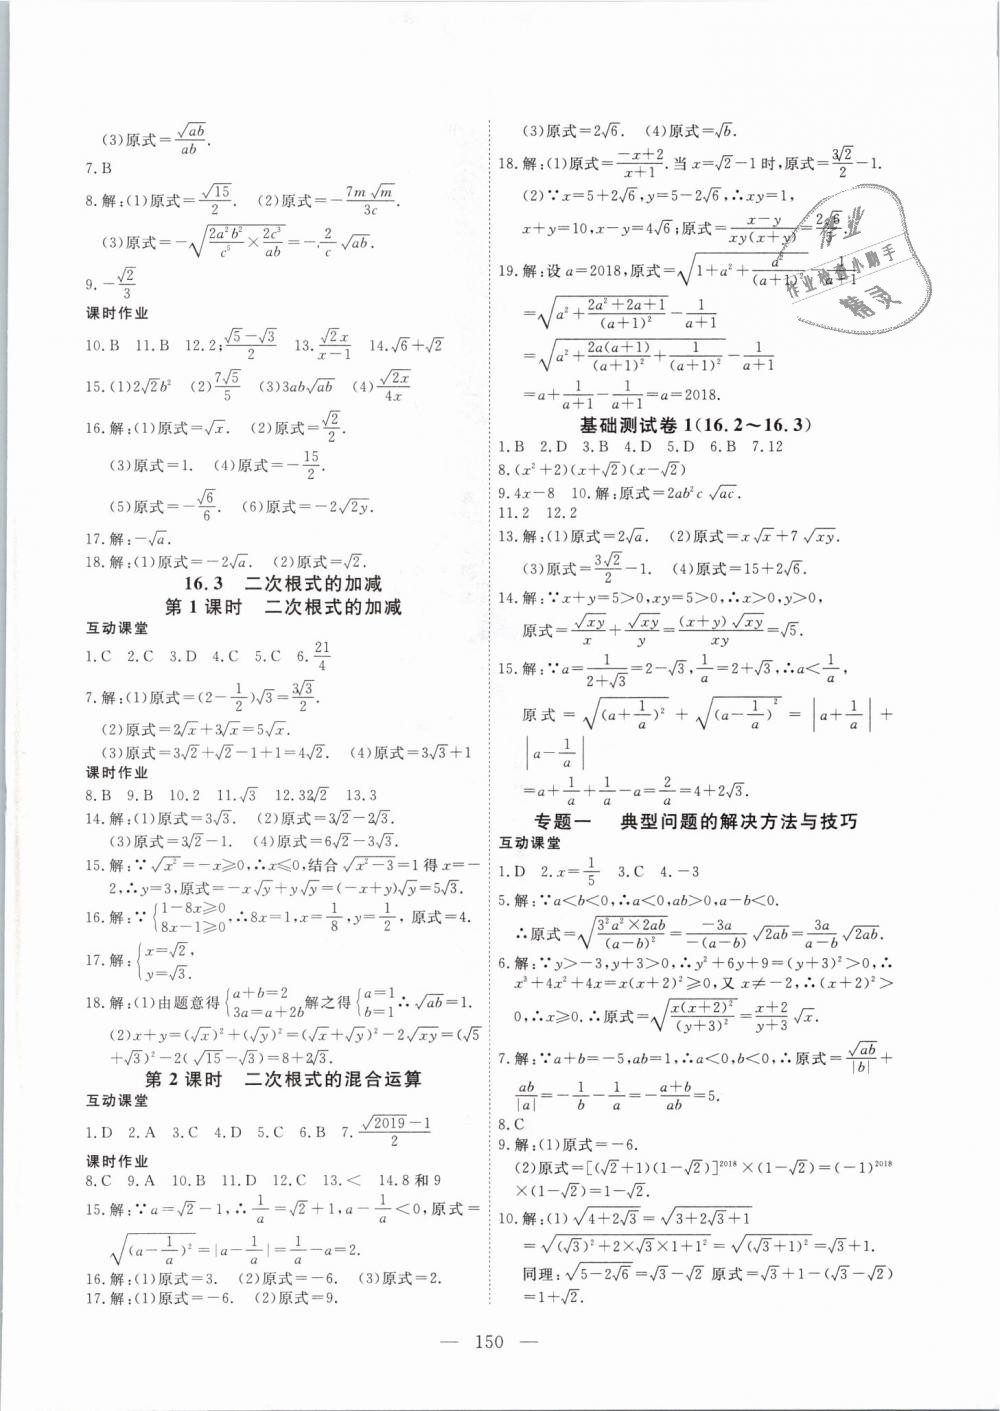 (3)原式=√ab/ab.
7.B
8.解:(1)原式=√15/2. (2)原式=-7m√m/3c.
(3)原式=-√(2a²b²/c⁵×2c³/ab)=-2/c√ab.
9.-√2/3
课时作业
10.B 11.B 12.2;(√5-√3)/2 13.√2x/(x-1) 14.√6+√2
15.(1)2√2b² (2)7√5/5 (3)3ab√ab (4)√2x/4x
16.解:(1)原式=√x. (2)原式=√2/2.
(3)原式=1. (4)原式=-15/2.
(5)原式=-√6/6. (6)原式=-2√2y.
17.解:-√a.
18.解:(1)原式=-2√a. (2)原式=√2.
16.3 二次根式的加减
第1课时 二次根式的加减
互动课堂
1.C 2.C 3.D 4.C 5.C 6.21/4
7.解:(1)原式=(2-1/2)√3=3√3/2.
(2)原式=2√x+3√x=5√x.
(3)原式=3√2+√2-1+1=4√2. (4)原式=3√3+1
课时作业
8.B 9.B 10.2 11.√3 12.32√2 13.3
14.解:(1)原式=3√3. (2)原式=3√2-2√3.
(3)原式=3√2-1. (4)原式=6√2-3√3.
15.解:∵√x²=-x≥0,∴x≤0,结合√(x²-3)=1得x=-
2,∴y=3,原式=-x√y+y√y=(-x+y)√y=5√3.
16.解:∵{1-8x≥0 8x-1≥0,∴8x=1,x=1/8,y=1/2,原式=4.
17.解:{x=√2, y=√3.
18.解:(1)由题意得{a+b=2 3a=a+2b解之得{a=1 b=1∴√ab=1.
(2)x+y=(√x)²+(√y)²=(√x+√y)²-2√xy=(√5
+√3)²-2(√15-√3)=8+2√3.
第2课时 二次根式的混合运算
互动课堂
1.D 2.A 3.C 4.D 5.C 6.B 7.(√2019-1)/2
课时作业
8.C 9.A 10.B 11.D 12.C 13.< 14.8和9
15.解:∵a=√2-1,∴1/a=√2+1,a-1/a<0,原式=
√(a-1/a)²=|a-1/a|=1/a-a=2.
16.解:(1)原式=3. (2)原式=-6. (3)原式=2.
17.解:(1)原式=-6. (2)原式=9.
(3)原式=2√6. (4)原式=√b.
18.解:(1)原式=(-x+2)/(x+1).当x=√2-1时,原式=3√2/2-1.
(2)∵x=5+2√6,y=5-2√6,∴xy=1,
x+y=10,x-y=4√6;原式=(x-y)/(xy(x+y))=2√6/
19.解:设a=2018,原式=√(1+a²+a²/(a+1)²)-1/(a+1)
=√(a²+(2a²+2a+1)/(a+1)²)-1/(a+1)
=√(a²+2a(a+1)/(a+1)²+1/(a+1)²)-1/(a+1)
=a+1/(a+1)-1/(a+1)=a=2018.
基础测试卷1(16.2~16.3)
1.B 2.D 3.B 4.D 5.D 6.B 7.12
8.(x²+2)(x+√2)(x-√2)
9.4x-8 10.解:原式=2ab²c√ac.
11.2 12.2
13.解:(1)原式=2√a. (2)原式=x√x+7√xy.
(3)原式=3√2/2-1. (4)原式=15+2√6.
14.解:∵x+y=5>0,xy=5>0,∴x>0,y>0,
原式=√xy/x+√xy/y=(x+y)√xy/xy=√5.
15.解:∵a=1/(2+√3)=2-√3,1/a=2+√3,∴a<1/a,
原式=√(a+1/a)²+√(a-1/a)²=|a+1/a|+
|a-1/a|
=a+1/a+1/a-a=2/a=4+2√3.
专题一 典型问题的解决方法与技巧
互动课堂
1.D 2.x=1/5 3.C 4.-3
5.解:∵a<b<0,∴a<0,ab>0,a-b<0.
∴原式=√(3²a²×2ab/(a-b)²)=-3a/-(a-b)√2ab=3a/(a-b)√2ab.
6.解:∵y>-3,y+3>0,∴y²+6y+9=(y+3)²>0,∴
x³+4x²+4x=x(x+2)²≥0,又x≠-2,∴(x+2)²>
0,∴x≥0.∴原式=√(x(x+2)²/(y+3)²)=(x+2)/(y+3)√x.
7.解:∵a+b=-5,ab=1,∴a<0,b<0,∴原式=√ab/|b|+
ab/|a|=-1/b-1/a=-(a+b)/ab=5.
8.C
9.解:(1)原式=-6.
(2)原式=[(√2+1)(1-√2)]²⁰¹⁸×(1-√2)=(-1)²⁰¹⁸
×(1-√2)=1-√2.
10.解:(1)√(4+2√3)=√(3+2√3+1)
=√((√3)²+2×√3×1+1²)=√(√3+1)²=√3+1.
同理:√(5-2√6)=√3-√2 原式=√3+1-(√3-√2)
=1+√2.
作业
作业检查小助手
精灵
— 150 —